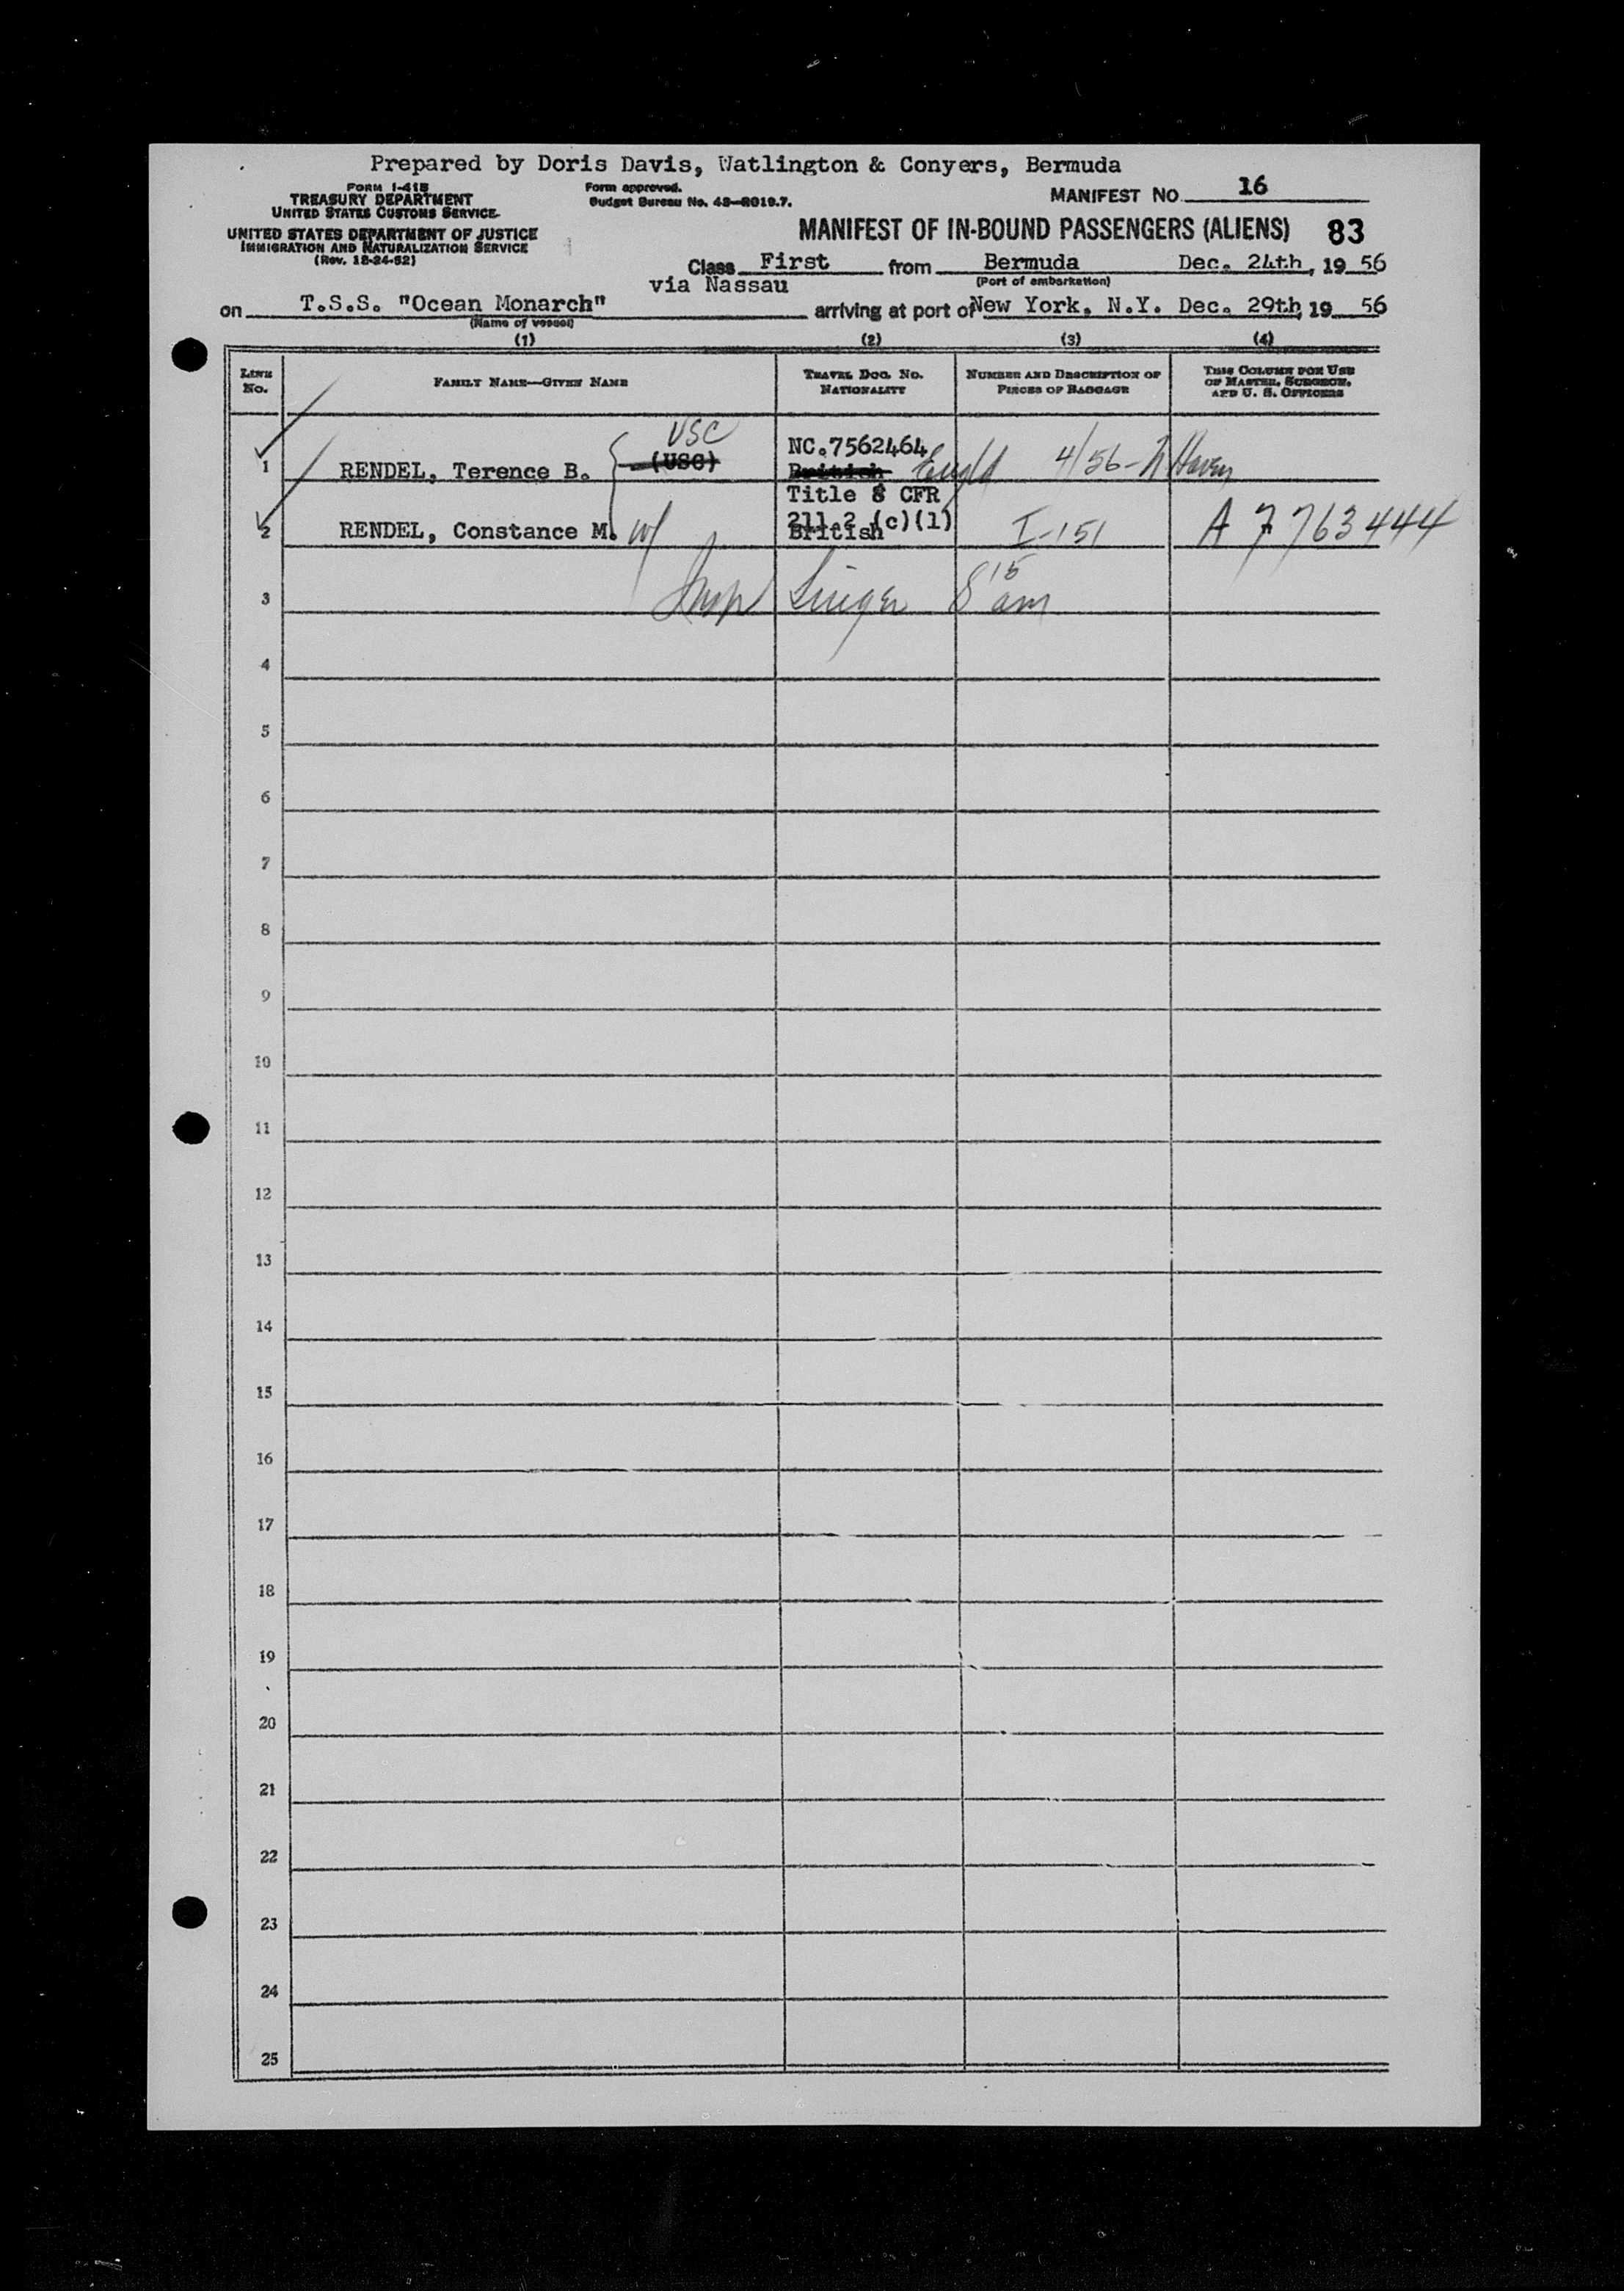 Prepared by Doris Davis, Watlington & Conyers, Bermuda
FORM I-415
TREASURY DEPARTMENT
UNITED STATES CUSTOMS SERVICE
UNITED STATES DEPARTMENT OF JUSTICE
IMMIGRATION AND NATURALIZATION SERVICE
(Rev. 12-24-52)
Form approved.
Budget Bureau No. 43-R019.7.
MANIFEST NO. 16
MANIFEST OF IN-BOUND PASSENGERS (ALIENS) 83
Class First from Bermuda Dec. 24th, 19 56
via Nassau (Port of embarkation)
on T.S.S. "Ocean Monarch" arriving at port of New York, N.Y. Dec. 29th, 19 56
(Name of vessel)
(1) (2) (3) (4)
LINE NO.
FAMILY NAME—GIVEN NAME
TRAVEL DOC. NO. NATIONALITY
NUMBER AND DESCRIPTION OF PIECES OF BAGGAGE
THIS COLUMN FOR USE OF MASTER, SURGEON, AND U. S. OFFICERS
USC
1 RENDEL, Terence B. (USC) NC.7562464 British 4/56 - N Haven
Title 8 CFR
211.2 (c)(1)
2 RENDEL, Constance M. w/ British I-151 A 7 763 444
3 Insp Singer 8 15 am
4
5
6
7
8
9
10
11
12
13
14
15
16
17
18
19
20
21
22
23
24
25